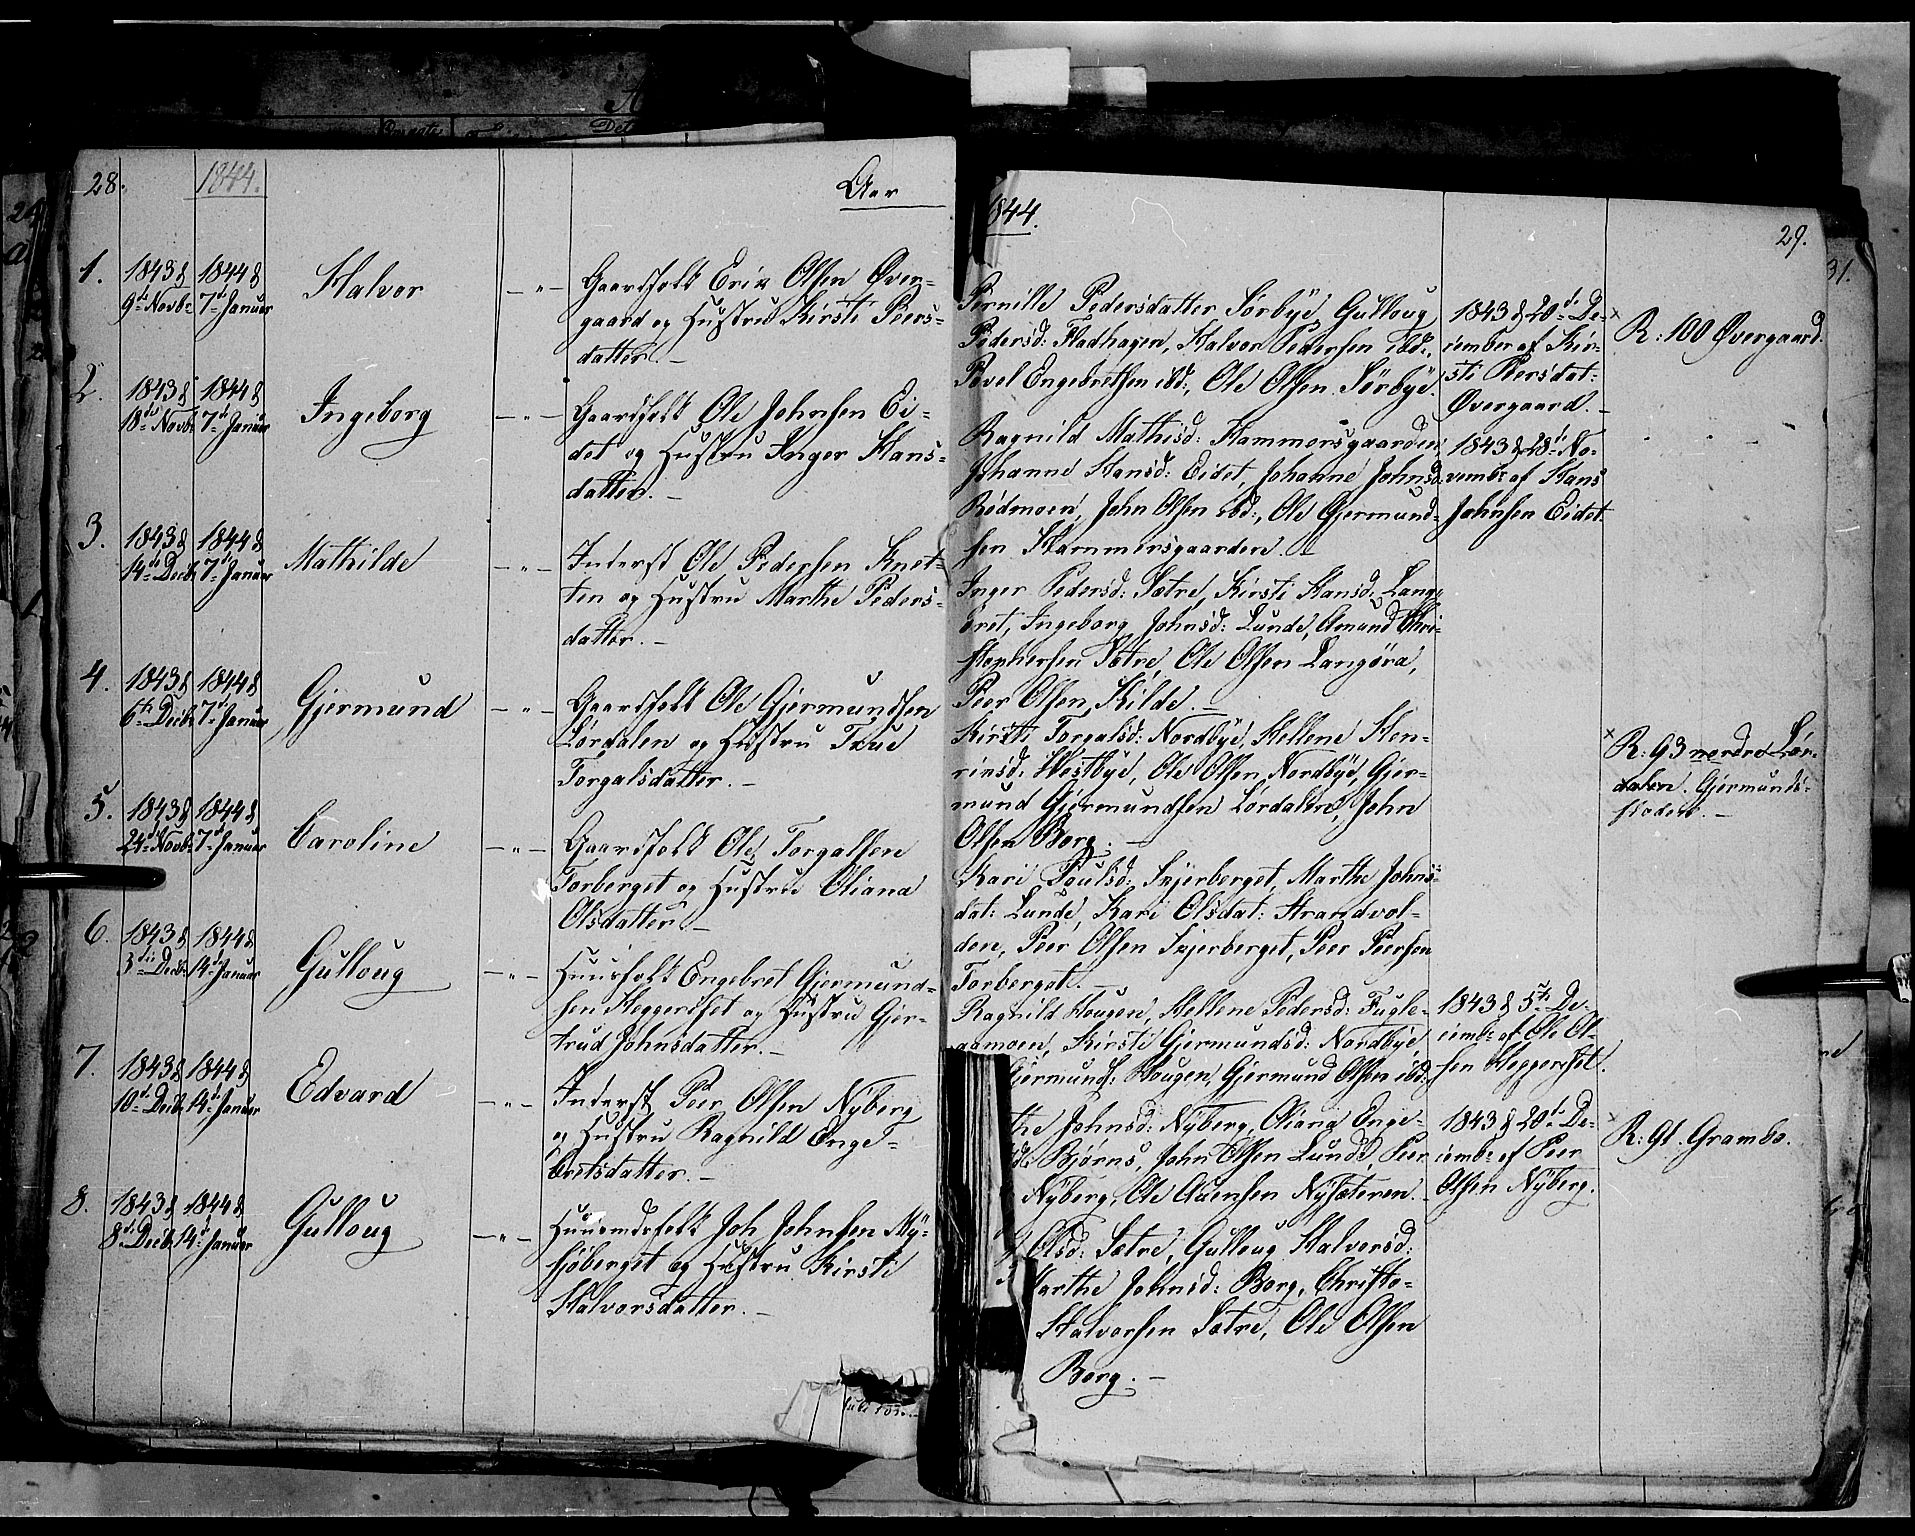 28.
1844.
Aar
1.
1843 d
9de Novbr
1844 d
7d Januar
Halvor
— " —
Gaardfolk Erik Olsen Øver-
gaard og Hustru Kirsti Peers-
datter. —
2.
1843 d
18de Novbr
1844 d
7d Januar
Ingeborg
— " —
Gaardfolk Ole Johnsen Ei-
det og Hustru Inger Hans-
datter. —
3.
1843 d
14de Decbr
1844 d
7d Januar
Mathilde
— " —
Inderst Ole Pedersen Knet-
ten og Hustru Marthe Peders-
datter. —
4.
1843 d
6te Decbr
1844 d
7d Januar
Gjermund
— " —
Gaardfolk Ole Gjermundsen
Lørdalen og Hustru True
Torgalsdatter. —
5.
1843 d
24de Novbr
1844 d
7d Januar
Caroline
— " —
Gaardfolk Ole Torgalsen
Torberget og Hustru Oliana
Olsdatter —
6.
1843 d
3die Decbr
1844 d
14d Januar
Gulloug
— " —
Huusfolk Engebret Gjermund-
sen Heggeriset og Hustru Gjer-
trud Johnsdatter. —
7.
1843 d
10de Decbr
1844 d
14d Januar
Edvard
— " —
Inderst Peer Olsen Nyberg
og Hustru Ragnild Enge-
bretsdatter. —
8.
1843 d
8de Decbr
1844 d
14d Januar
Gulloug
— " —
Huusmdsfolk Joh Johnsen My-
sjøberget og Hustru Kirsti
Halvorsdatter. —
1844.
29.
31.
Pernille Pedersdatter Sørbye, Gulloug
Pedersd: Fladhagen, Halvor Pedersen ibd:,
Povel Engebretsen ibd:, Ole Olsen Sörbye.
1843 d 20de De-
cember af Kir-
sti Peersdat:
Øvergaard. —
R: 100 Øvergaard.
Ragnild Mathisd: Hammersgaarden,
Johanne Hansd: Eidet, Johanne Johnsd
Rödmoen, John Olsen ibd:, Ole Gjermund-
sen Hammersgaarden. —
1843 d 28de No-
vembr af Hans
Johnsen Eidet.
Inger Pedersd: Sætre, Kirsti Hansd: Lang-
øret, Ingeborg Johnsd: Lunde, Amund Chri-
stophersen Sætre, Ole Olsen Langøra,
Peer Olsen Kilde. —
Kirsti Torgalsd: Nordbye, Hellene Hen-
riksd: Westbye, Ole Olsen Nordbye, Gjer-
mund Gjermundsen Lørdalen, John
Olsen Borg. —
R: 93 nerdre Lør-
dalen. Gjermunds-
floden. —
Kari Poulsd: Skjerberget, Marthe Johns-
dat: Lunde, Kari Olsdat: Strandvol-
den, Peer Olsen Skjerberget, Peer Peersen
Torberget. —
Ragnild Hougen, Hellene Pedersd: Fugle-
aamoen, Kirsti Gjermundsd: Nordbye,
Gjermunds: Hougen, Gjermund Olsen ibd:
1843 d 5te De-
cembr af Ole Ol-
sen Heggeriset.
the Johnsd: Nyberg, Oliana Enge-
sd: Bjørns, John Olsen Lunde, Peer
Nyberg, Ole Auensen Nysæteren.
1843 d 20de De-
cembr af Peer
Olsen Nyberg.
R: 91. Grambo.
Olsd: Sætre, Gulloug Halvorsd:
Marthe Johnsd: Borg, Christo-
Halvorsen Sætre, Ole Olsen
Borg. —